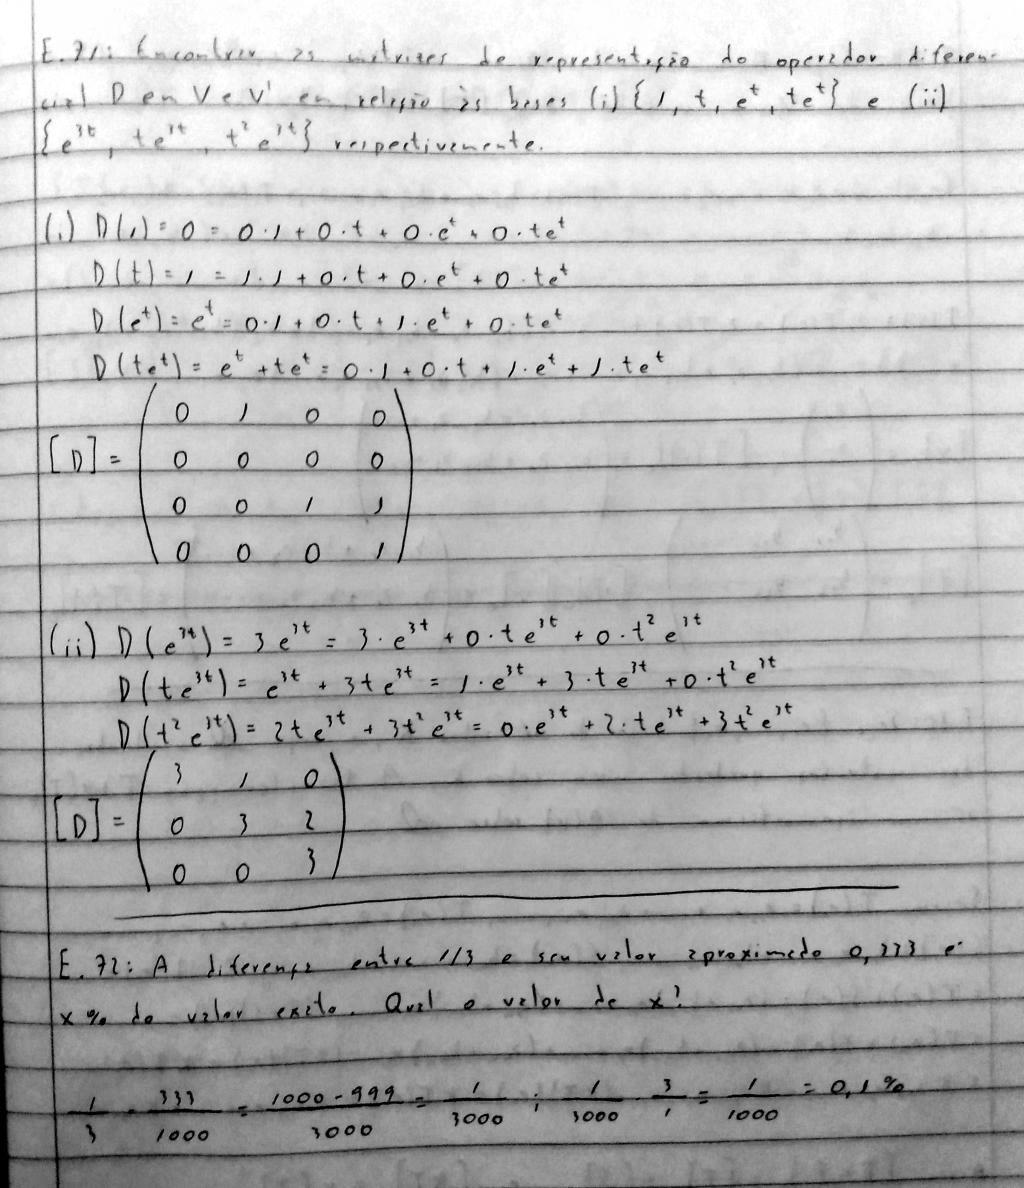 E.71: Encontrar as matrizes de representação do operador diferen-
cial D en V e V' en relação às bases (i) {1, t, e^t, te^t} e (ii)
{e^3t, te^3t, t²e^3t} respectivamente.
(i) D(1) = 0 = 0·1 + 0·t + 0·e^t + 0·te^t
D(t) = 1 = 1·1 + 0·t + 0·e^t + 0·te^t
D(e^t) = e^t = 0·1 + 0·t + 1·e^t + 0·te^t
D(te^t) = e^t + te^t = 0·1 + 0·t + 1·e^t + 1·te^t
0 1 0 0
[D] = 0 0 0 0
0 0 1 1
0 0 0 1
(ii) D(e^3t) = 3e^3t = 3·e^3t + 0·te^3t + 0·t²e^3t
D(te^3t) = e^3t + 3te^3t = 1·e^3t + 3·te^3t + 0·t²e^3t
D(t²e^3t) = 2te^3t + 3t²e^3t = 0·e^3t + 2·te^3t + 3t²e^3t
3 1 0
[D] = 0 3 2
0 0 3
E.72: A diferença entre 1/3 e seu valor aproximado 0,333 é
x% do valor exato. Qual o valor de x?
1/3 - 333/1000 = (1000-999)/3000 = 1/3000 ; 1/3000 · 3/1 = 1/1000 = 0,1%